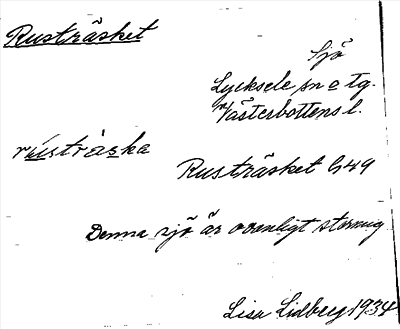 Rusträsket
Sjö
Lycksele sn o tg.
Västerbottens l.
rústràska
Rusträsket G49
Denna sjö är ovanligt stormig
Lisa Lidberg 1934